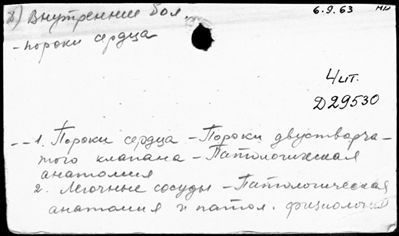 8) Внутренние бол. 6.9.63
- пороки сердца
Чит.
Д29530
-- 1. Пороки сердца - Пороки двустворча-
того клапана - Патологическая
анатомия
2. Легочные сосуды - Патологическая
анатомия и патол. физиология